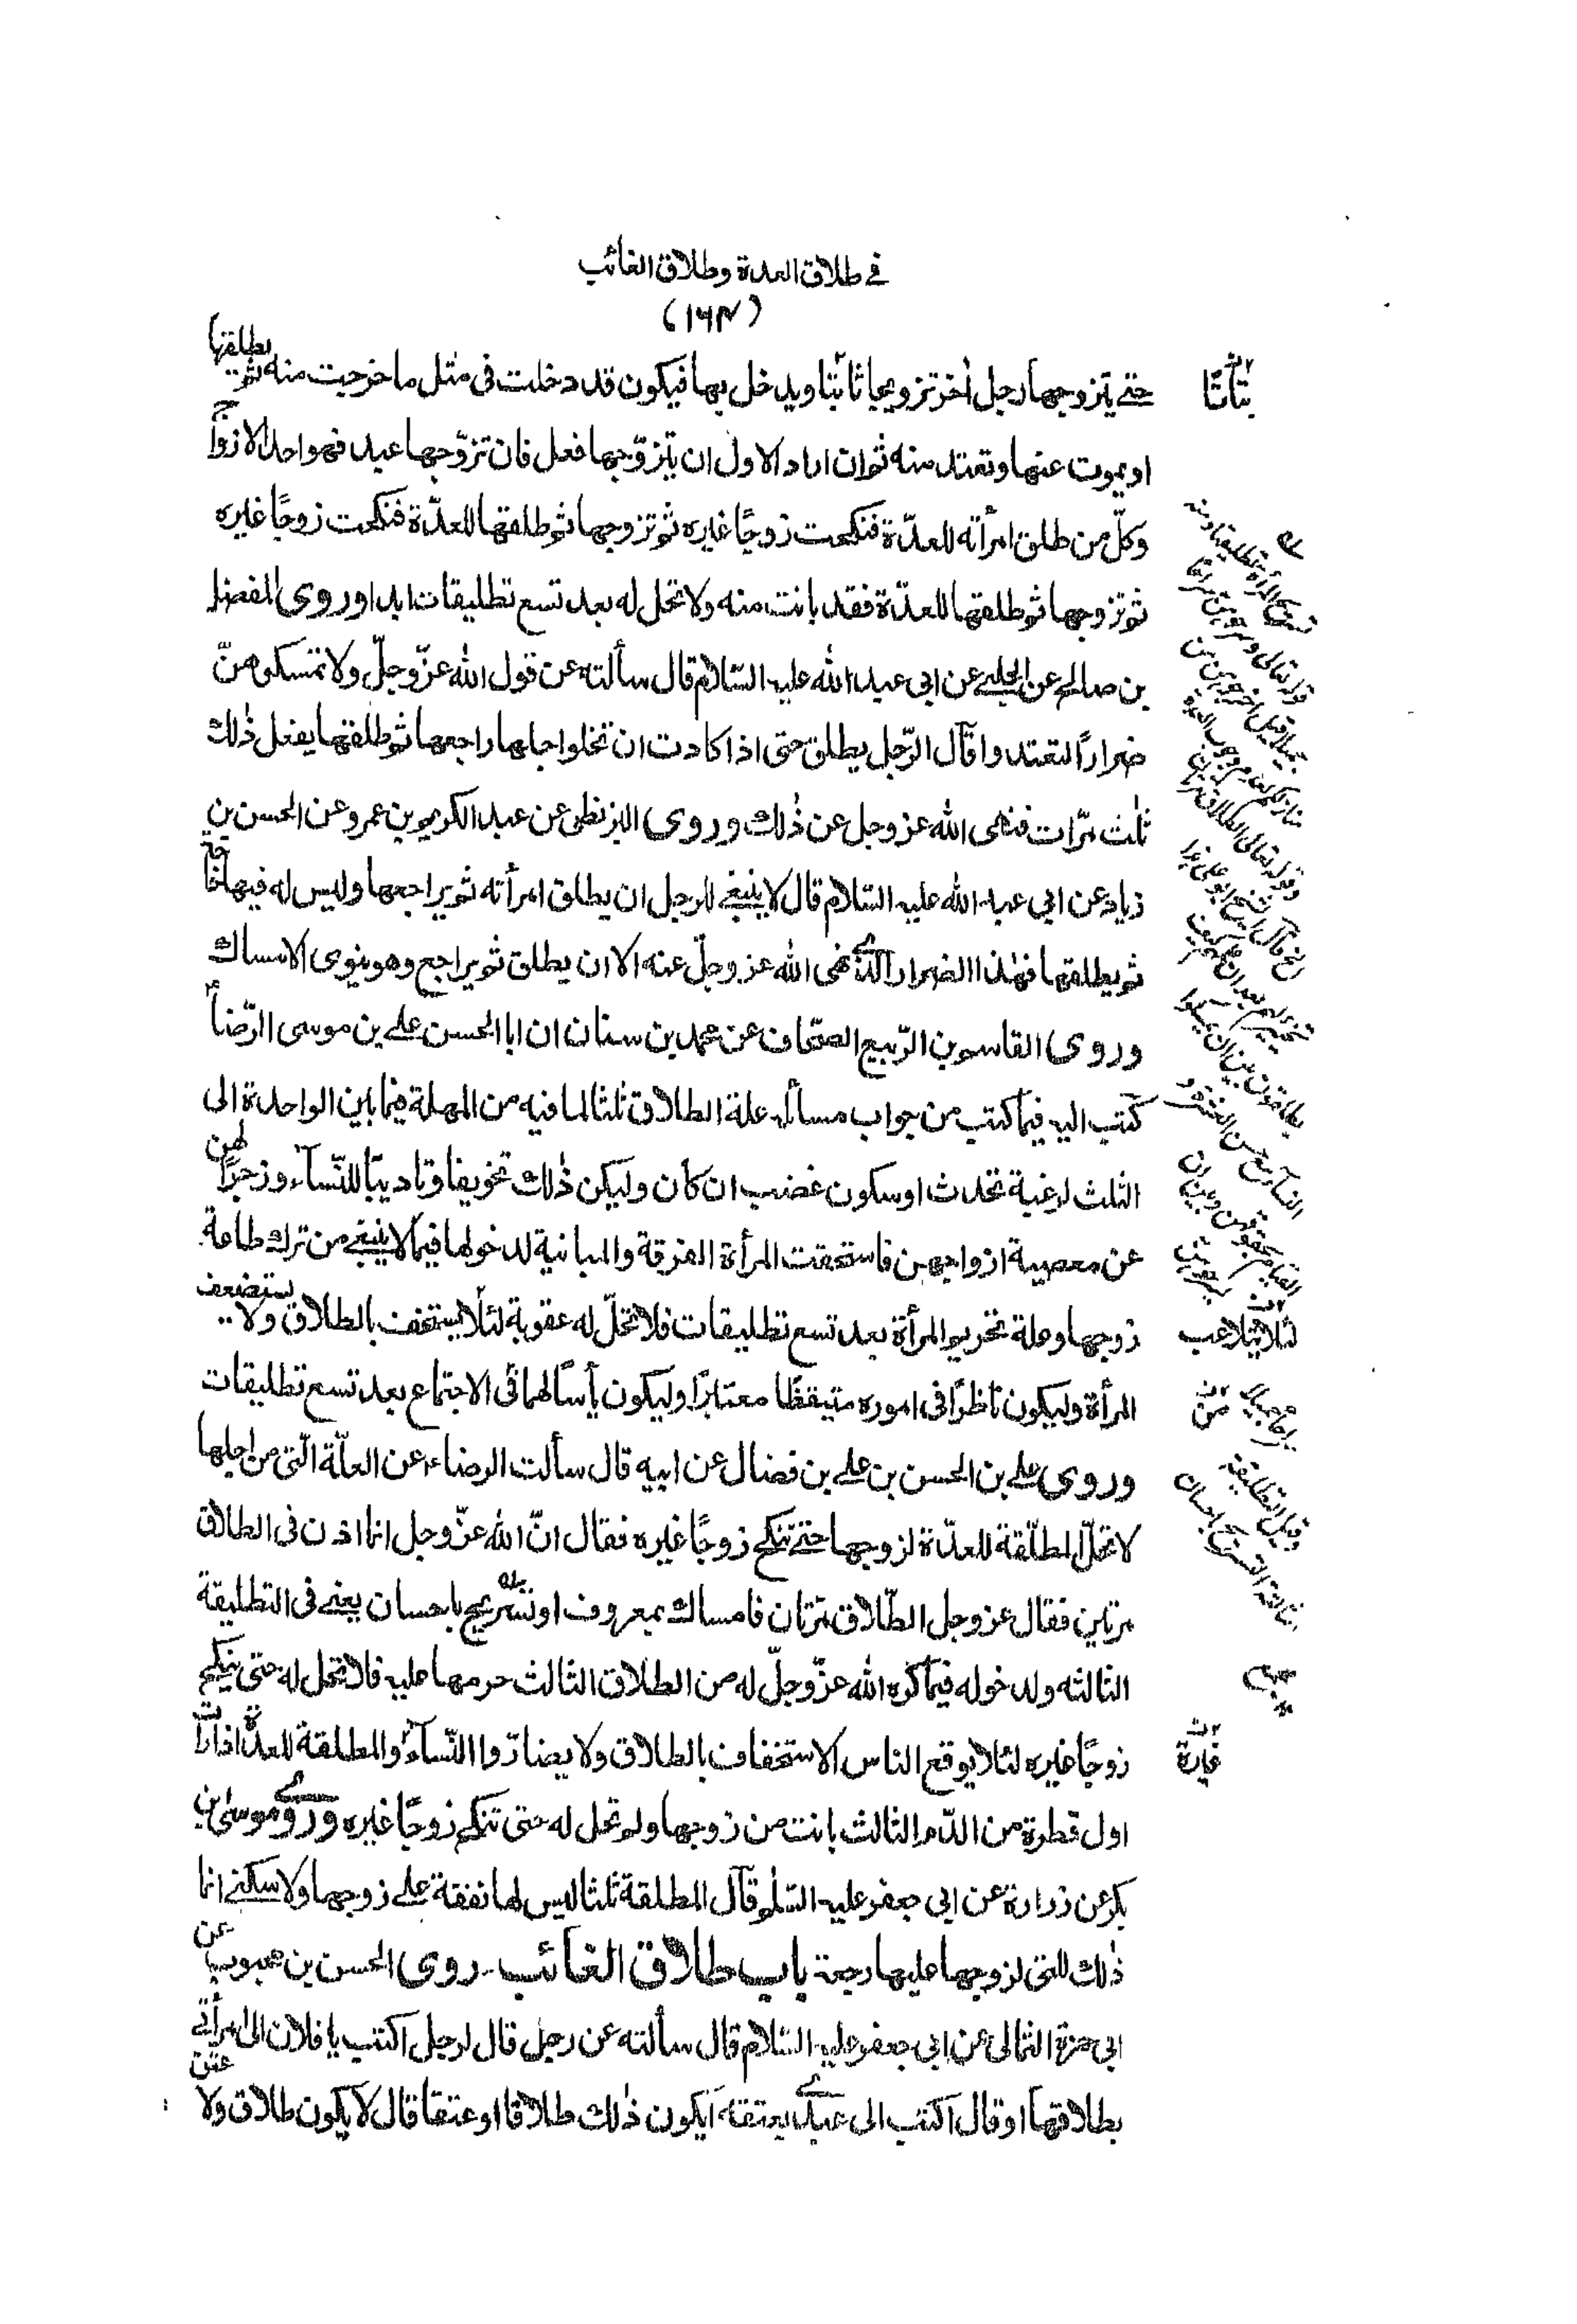 في طلاق العدة وطلاق الغائب
(۱۶۴)
حتى يتزوجها رجل اخر تزويجا ثابتا ويدخل بها فيكون قد دخلت في مثل ما خرجت منه ثم يطلقها
او يموت عنها وتعتد منه ثم ان اراد الاول ان يتزوّجها فعل فان تزوّجها عبد فهو احد الازواج
وكلّ من طلق امرأته للعدّة فنكحت زوجًا غيره ثم تزوجها ثم طلقها للعدّة فنكحت زوجًا غيره
ثم تزوجها ثم طلقها للعدّة فقد بانت منه ولا تحل له بعد تسع تطليقات ابدا وروى المفضل
بن صالح عن الحلبي عن ابي عبد الله عليه السّلام قال سألته عن قول الله عزّ وجلّ ولا تمسكوهنّ
ضرارًا لتعتدوا قال الرّجل يطلق حتى اذا كادت ان تخلو اجلها راجعها ثم طلقها يفعل ذلك
ثلث مرّات فنهى الله عز وجل عن ذلك وروى البزنطي عن عبد الكريم بن عمرو عن الحسن بن
زياد عن ابي عبد الله عليه السّلام قال لا ينبغي للرجل ان يطلق امرأته ثم يراجعها وليس له فيها حاجة
ثم يطلقها فهذا الضرار الذي نهى الله عز وجلّ عنه الا ان يطلق ثم يراجع وهو ينوى الامساك
وروى القاسم بن الرّبيع الصحّاف عن محمد بن سنان ان ابا الحسن علي بن موسى الرّضا
كتب اليه فيما كتب من جواب مسائله علة الطلاق ثلثا لما فيه من المهلة فيما بين الواحدة الى
الثلث لرغبة تحدث او سكون غضب ان كان وليكن ذلك تخويفا وتاديبًا للنّساء وزجرًا لهن
عن معصية ازواجهن فاستحقت المرأة الفرقة والمباينة لدخولها فيما لا ينبغي من ترك طاعة
زوجها وعلة تحريم المرأة بعد تسع تطليقات فلا تحلّ له عقوبة لئلّا يستخف بالطلاق ولا يستضعف
المرأة وليكون ناظرًا في اموره متيقظًا معتبرًا وليكون يأسًا لهما في الاجتماع بعد تسع تطليقات
وروى علي بن الحسن بن علي بن فضال عن ابيه قال سألت الرضاء عن العلّة الّتي من اجلها
لا تحلّ المطلّقة للعدّة لزوجها حتى تنكح زوجًا غيره فقال انّ الله عزّ وجل انما اذن في الطلاق
مرتين فقال عز وجل الطّلاق مرّتان فامساك بمعروف او تسريح باحسان يعني في التطليقة
الثالثة ولدخوله فيما كره الله عزّ وجلّ له من الطلاق الثالث حرمها عليه فلا تحل له حتى ينكح
زوجًا غيره لئلا يوقع الناس الاستخفاف بالطلاق ولا يضارّوا النّساء والمطلقة للعدّة اذا رأت
اول قطرة من الدّم الثالث بانت من زوجها ولم تحل له حتى تنكح زوجًا غيره وروى موسى بن
بكر عن زرارة عن ابي جعفر عليه السّلم قال المطلقة ثلثا ليس لها نفقة على زوجها ولا سكنى انما
ذلك للتي لزوجها عليها رجعة باب طلاق الغائب روى الحسن بن محبوب عن
ابي حمزة الثمالى عن ابي جعفر عليه السّلام قال سألته عن رجل قال لرجل اكتب يا فلان الى امرأتي
بطلاقها او قال اكتب الى عبدي بعتقه ايكون ذلك طلاقا او عتقا قال لا يكون طلاق ولا عتق
بتاتًا
لئلا يتلاعب
من
غيره